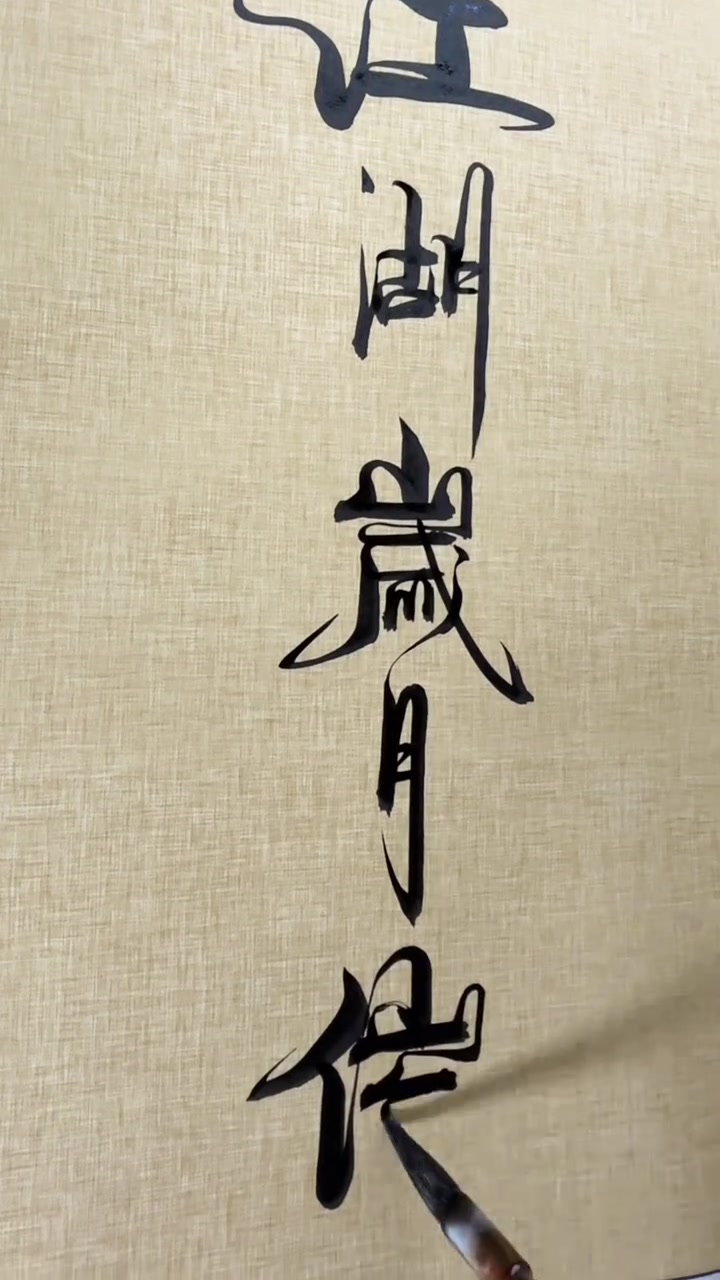 江湖歲月催